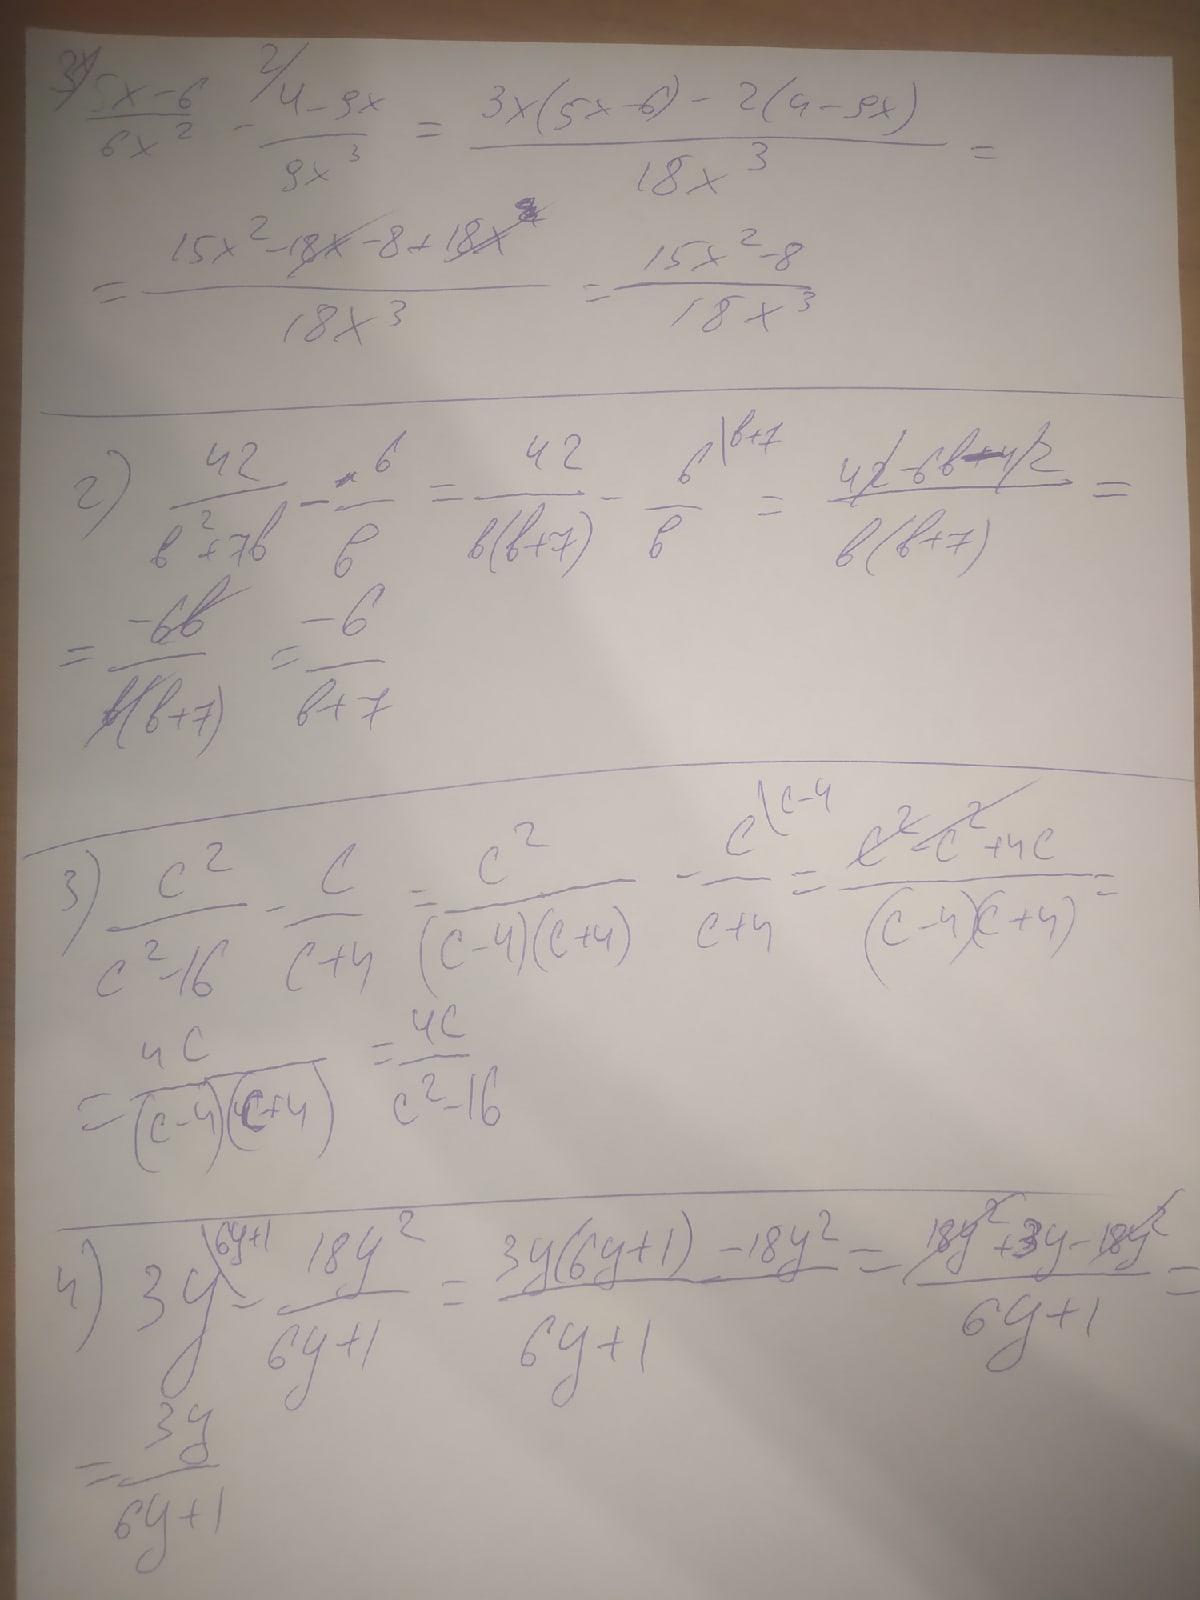 3x/ 5x-6/6x² - 2/ 4-9x/9x³ = 3x(5x-6)-2(4-9x)/18x³ =
= 15x²-18x-8+18x/18x³ = 15x²-8/18x³
2) 42/в²+7в - 6/в = 42/в(в+7) - 6\в+7/в = 42-6в-42/в(в+7) =
= -6в/в(в+7) = -6/в+7
3) c²/c²-16 - c/c+4 = c²/(c-4)(c+4) - c\c-4/c+4 = c²-c²+4c/(c-4)(c+4) =
= 4c/(c-4)(c+4) = 4c/c²-16
4) 3y\6y+1 - 18y²/6y+1 = 3y(6y+1)-18y²/6y+1 = 18y²+3y-18y²/6y+1 =
= 3y/6y+1